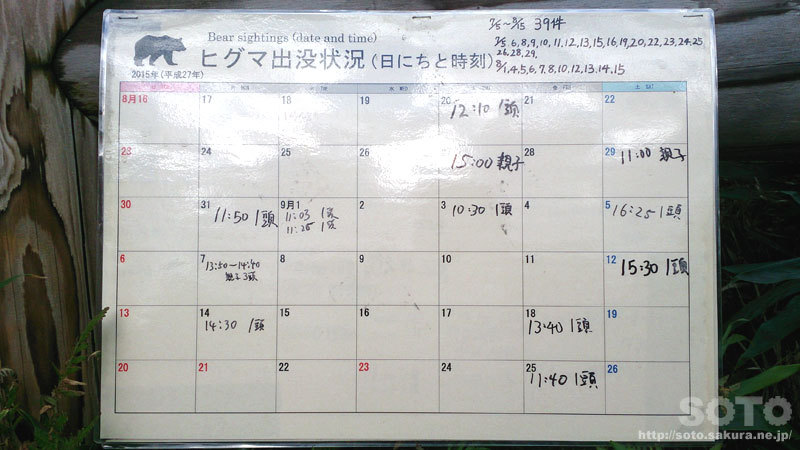 Bear sightings (date and time)
ヒグマ出没状況(日にちと時刻)
2015年(平成27年)
7/5~8/15 39件
7/5 6,8,9,10,11,12,13,15,16,19,20,22,23,24,25
26,28,29,
8/1,4,5,6,7,8,10,12,13,14,15
8月16 17 18 19 20 21 22
12:10 1頭
23 24 25 26 28 29
15:00 親子 11:00 親子
30 31 9月1 2 3 4 5
11:50 1頭 11:03 1頭 10:30 1頭 16:25 1頭
11:25 1頭
6 7 8 9 10 11 12
13:50-14:40 15:30 1頭
親子3頭
13 14 15 16 17 18 19
14:30 1頭 13:40 1頭
20 21 22 23 24 25 26
11:40 1頭
SOTO
http://soto.sakura.ne.jp/